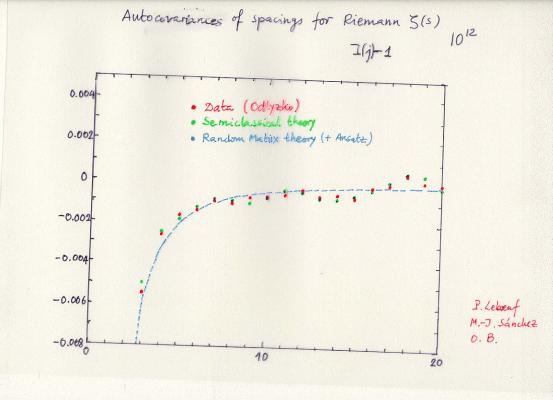 Autocovariances of spacings for Riemann ζ(s)
I(j)-1
10^12
0.004
• Data (Odlyzko)
• Semiclassical theory
0.002
• Random Matrix theory (+ Ansatz)
0
-0.002
-0.004
-0.006
-0.008
0
10
20
P. Leboeuf
M.-J. Sánchez
O. B.